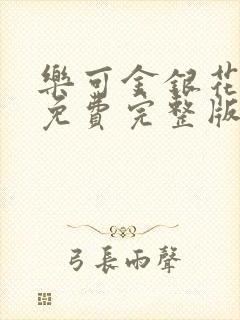 樂可金銀花
免費完整版
弓長雨聲